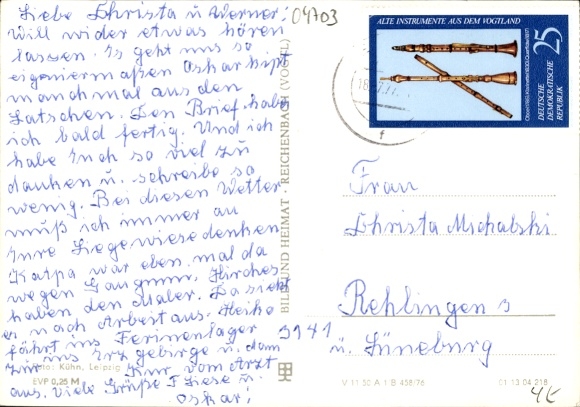 Liebe Christa u. Werner!
will wider etwas hören
lassen. Es geht uns so
eigenermaßen Oskar hipt
manchmal aus den
Latschen. Den Brief habe
ich bald fertig. Und ich
habe Euch so viel zu
danken u. schreibe so
wenig. Bei diesen Wetter
muß ich immer an
Eure Liegewiese denken
Katja war eben mal da
wegen
haben den Maler. Da sieht
es nach Arbeit aus. Heike
fährt ins Ferienlager
ins Erzgebirge u. dann
zur Kur vom Arzt
aus. viele Grüße Liese u.
Oskar!
Foto: Kühn, Leipzig
EVP 0,25 M
BILD UND HEIMAT · REICHENBACH (VOGTL)
V 11 50 A 1 B 458/76
01 13 04 218
04703
ALTE INSTRUMENTE AUS DEM VOGTLAND
25
DEUTSCHE
DEMOKRATISCHE
REPUBLIK
Frau
Christa Michalski
Rehlingen
3141
ü. Lüneburg
4€